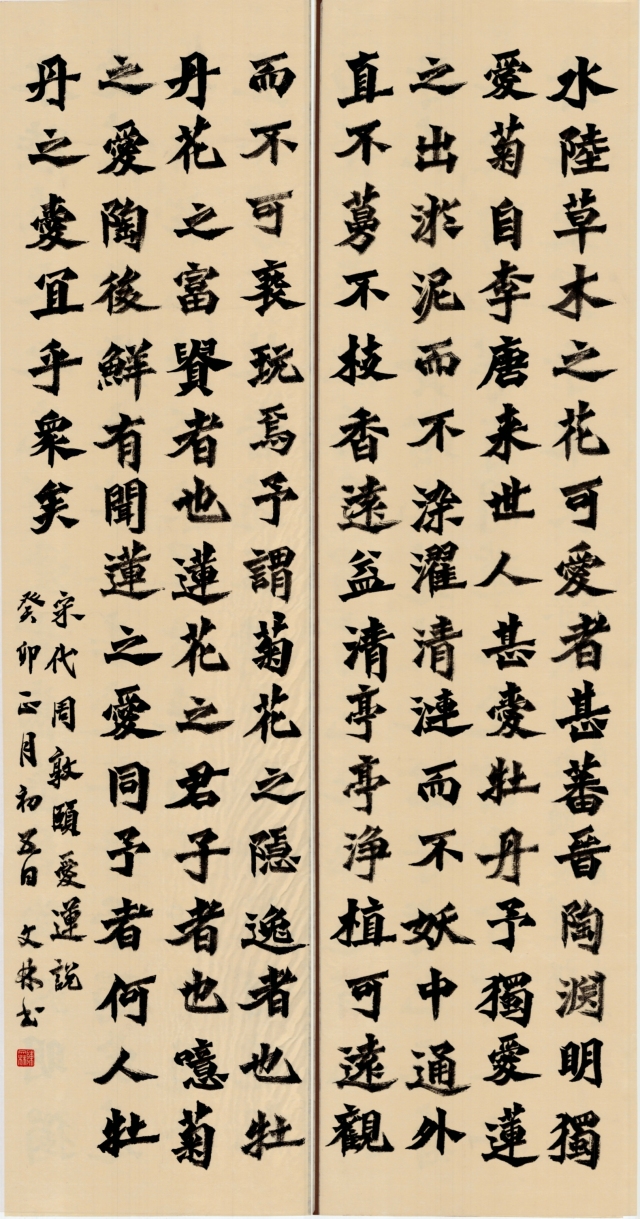 水陸草木之花可愛者甚蕃晉陶淵明獨
愛菊自李唐来世人甚愛牡丹予獨愛蓮
之出淤泥而不染濯清漣而不妖中通外
直不蔓不枝香遠益清亭亭浄植可遠觀
而不可褻玩焉予謂菊花之隠逸者也牡
丹花之富貴者也蓮花之君子者也噫菊
之愛陶後鮮有聞蓮之愛同予者何人牡
丹之愛宜乎衆矣
宋代周敦頤愛蓮說
癸卯正月初五日文林书